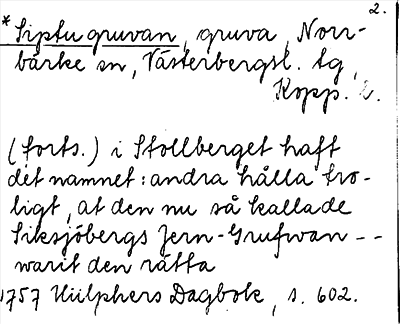 2.
*Siptu gruvan, gruva, Norr-
bärke sn, Västerbergsl. tg,
Kopp. l.
(forts.) i Stollberget haft
det namnet: andra hålla tro-
ligt, at den nu så kallade
Siksjöbergs Jern-Grufwan --
warit den rätta
1757 Hülphers Dagbok, s. 602.